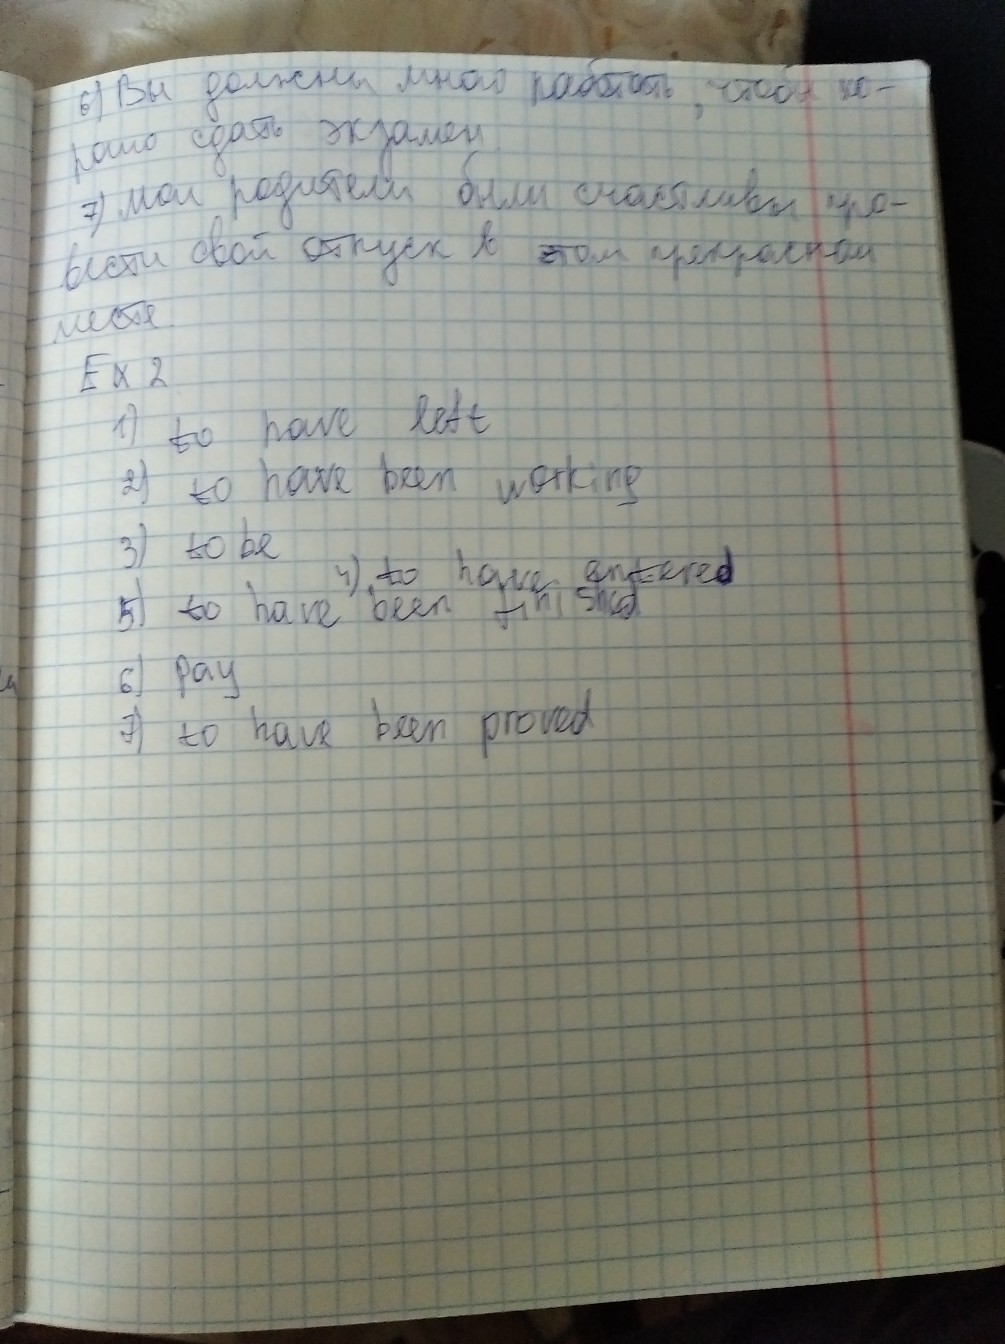 6) Вы должны много работать, чтобы хо-
рошо сдать экзамен
7) Мои родители были счастливы про-
вести свой отпуск в этом прекрасном
месте
Ex 2
1) to have left
2) to have been working
3) to be
4) to have entered
5) to have been finished
6) pay
7) to have been proved